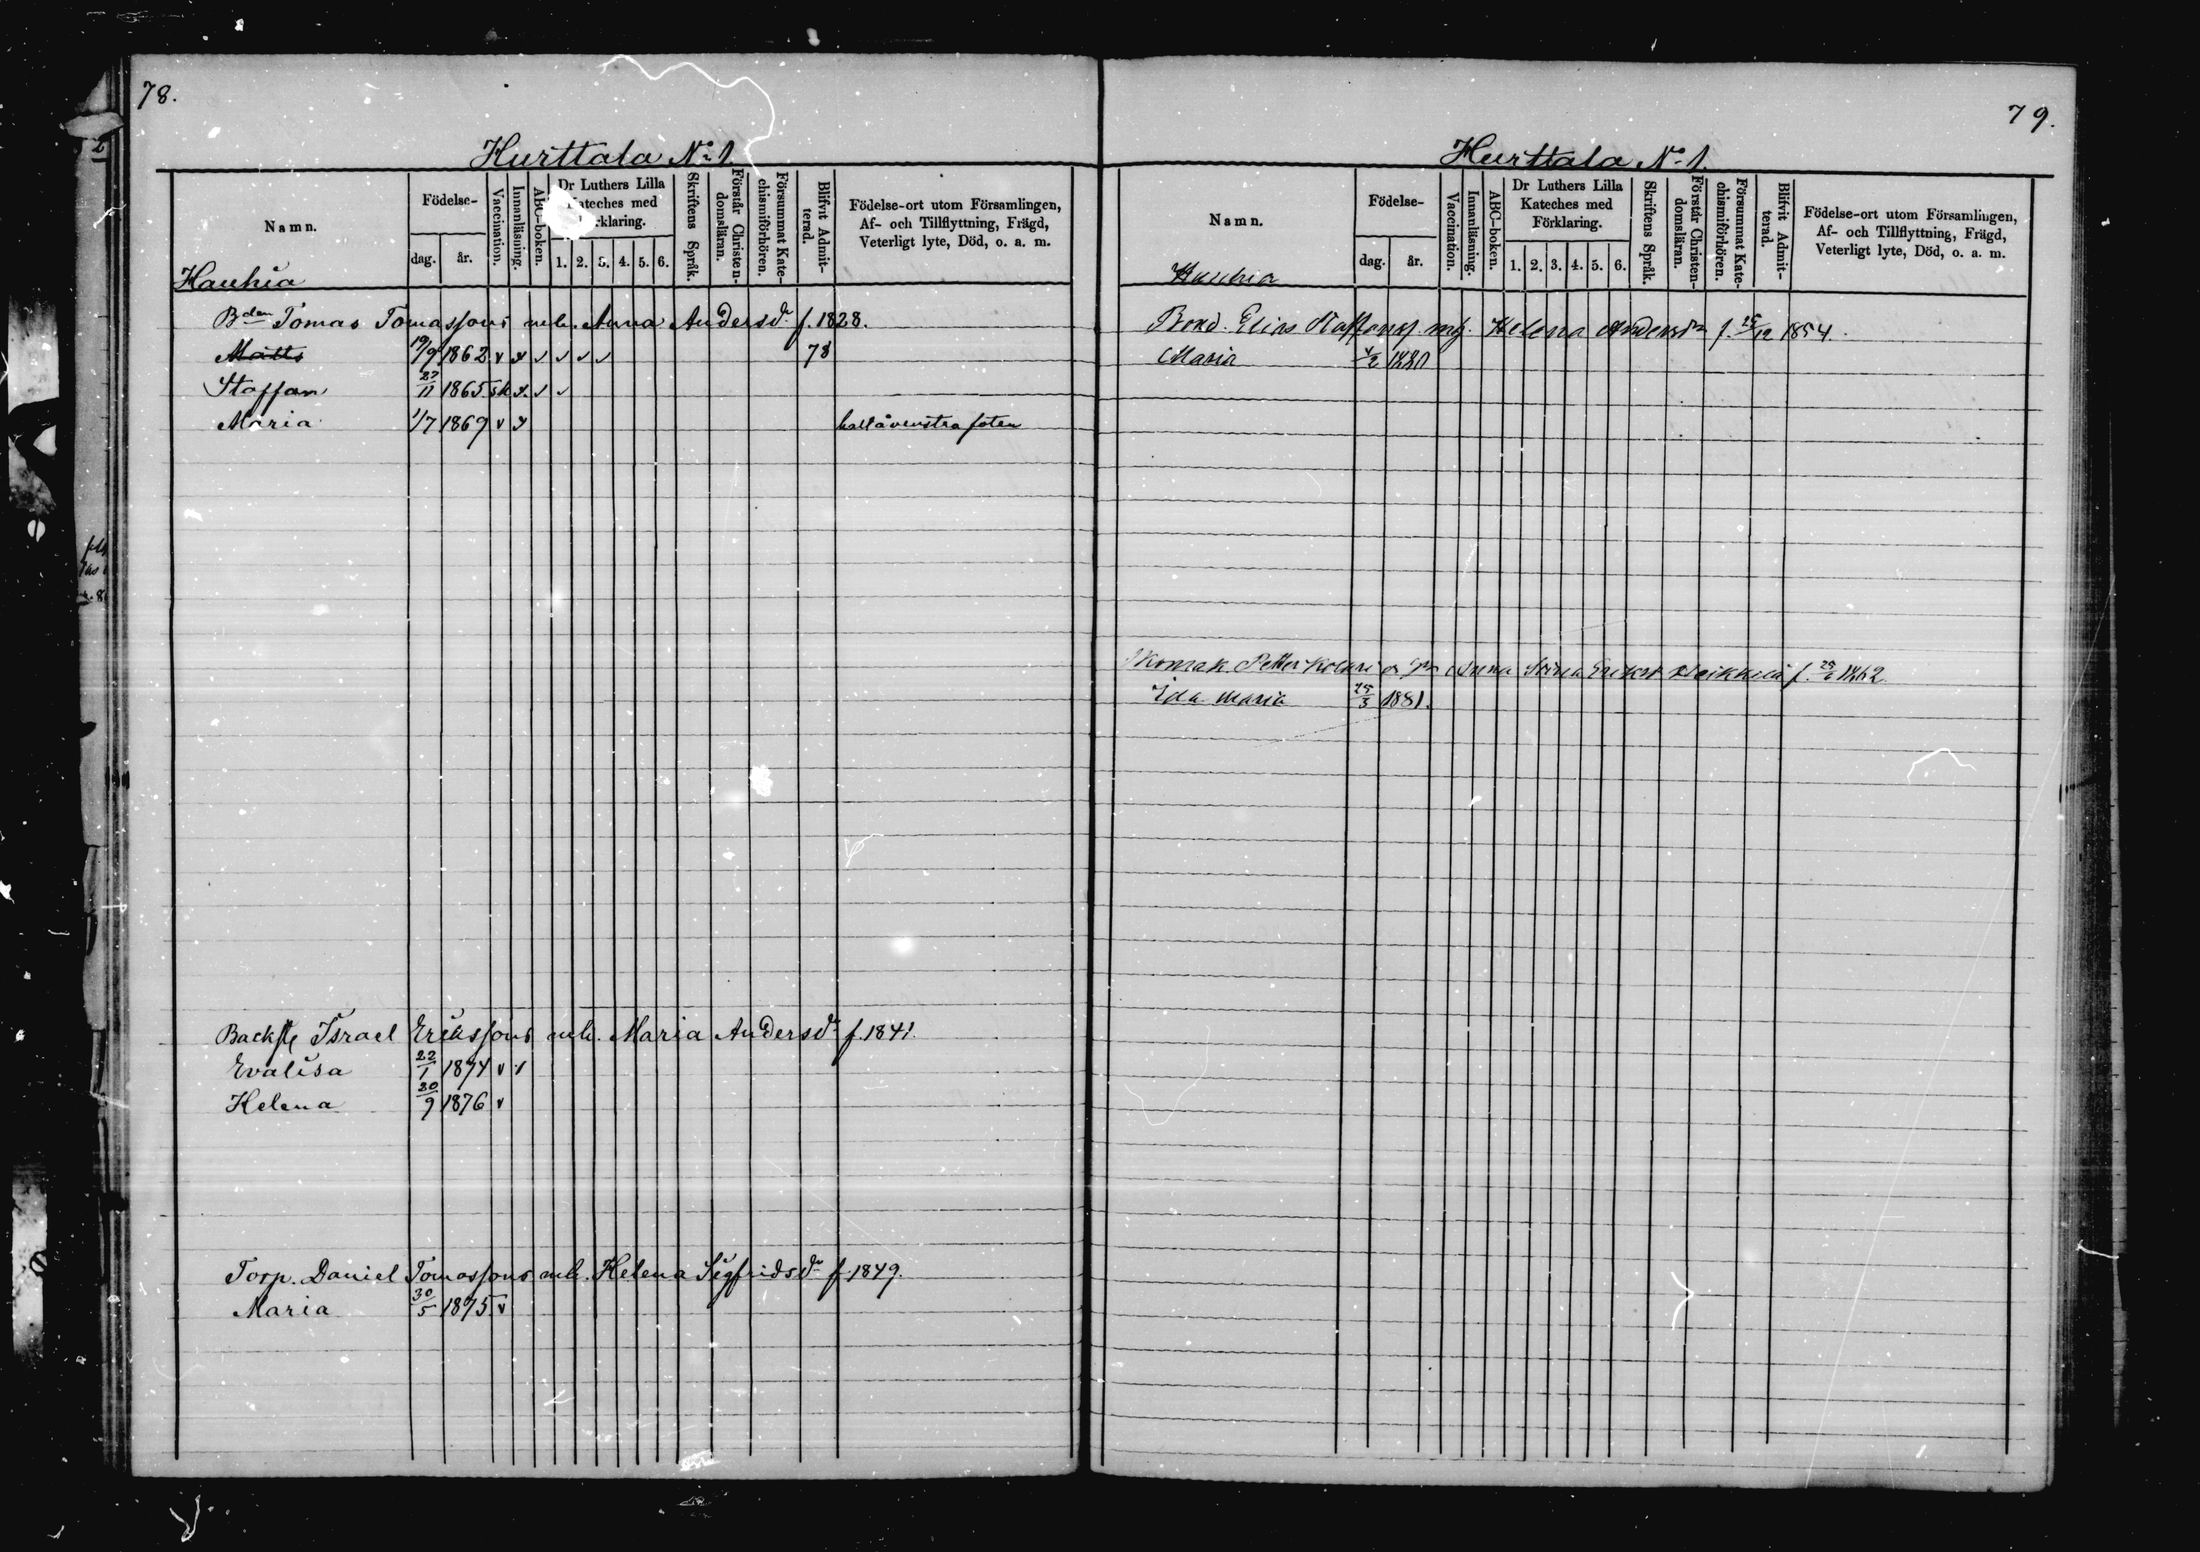 78.
Hurttala No 1.
Namn.
Födelse-
dag.
år.
Vaccination.
Innanläsning.
ABC-boken.
Dr Luthers Lilla
Kateches med
Förklaring.
1. 2. 3. 4. 5. 6.
Skriftens Språk.
Förstår Christen-
domsläran.
Försummat Kate-
chismiförhören.
Blifvit Admit-
terad.
Födelse-ort utom Församlingen,
Af- och Tillflyttning, Frägd,
Veterligt lyte, Död, o. a. m.
Hauhia
Bden Tomas Tomassons enk. Anna Andersdr f. 1828.
Matts 19/9 1862 v v v v v v 78
Staffan 27/11 1865 sk v. v v
Maria 1/7 1869 v v
Backst Israel Erikssons enk. Maria Andersdr f. 1841.
Evalisa 22/1 1874 v v
Helena 30/9 1876 v
Torp. Daniel Tomassons enk. Helena Sigfridsdr f. 1849.
Maria 30/5 1875 v
79.
Hurttala No 1.
Namn.
Födelse-
dag.
år.
Vaccination.
Innanläsning.
ABC-boken.
Dr Luthers Lilla
Kateches med
Förklaring.
1. 2. 3. 4. 5. 6.
Skriftens Språk.
Förstår Christen-
domsläran.
Försummat Kate-
chismiförhören.
Blifvit Admit-
terad.
Födelse-ort utom Församlingen,
Af- och Tillflyttning, Frägd,
Veterligt lyte, Död, o. a. m.
Hauhia
Bond. Elias Staffanss. Helena Andersdr f. 25/12 1854.
Maria
Skomak. Petter Anna Stina f. 1862
Ida Maria 25/3 1881.